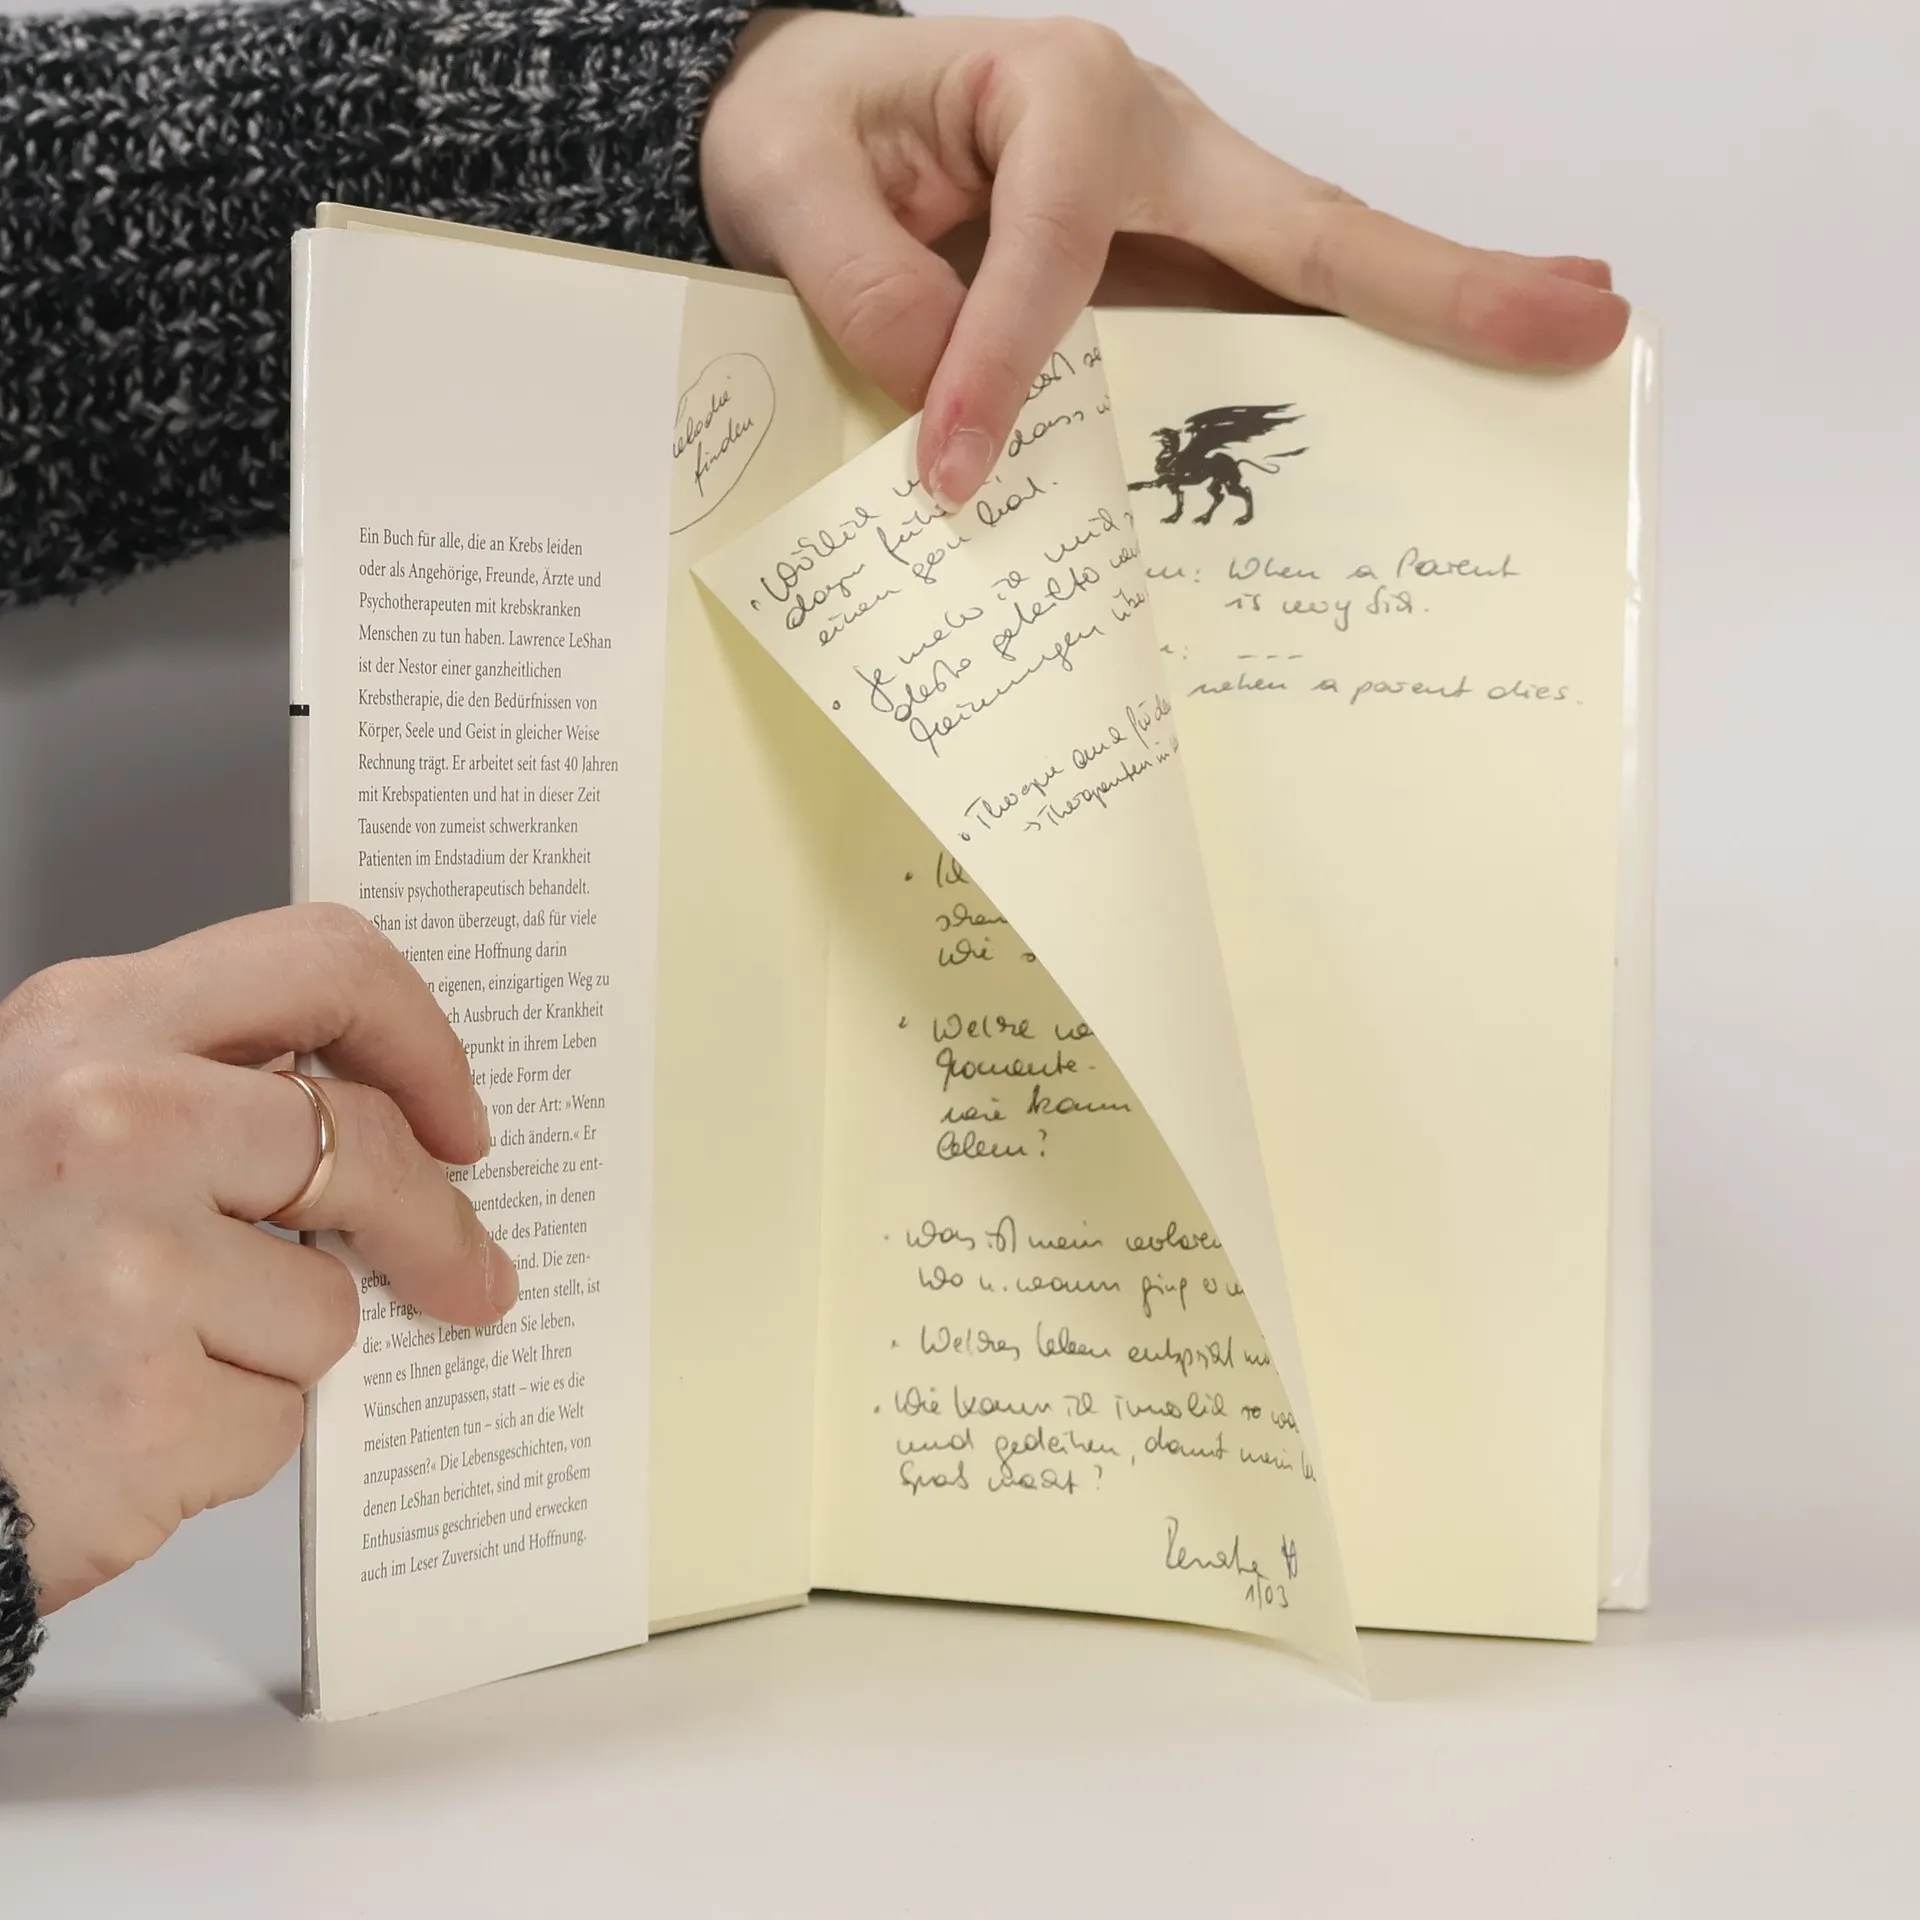 Ein Buch für alle, die an Krebs leiden
oder als Angehörige, Freunde, Ärzte und
Psychotherapeuten mit krebskranken
Menschen zu tun haben. Lawrence LeShan
ist der Nestor einer ganzheitlichen
Krebstherapie, die den Bedürfnissen von
Körper, Seele und Geist in gleicher Weise
Rechnung trägt. Er arbeitet seit fast 40 Jahren
mit Krebspatienten und hat in dieser Zeit
Tausende von zumeist schwerkranken
Patienten im Endstadium der Krankheit
intensiv psychotherapeutisch behandelt.
eShan ist davon überzeugt, daß für viele
tienten eine Hoffnung darin
n eigenen, einzigartigen Weg zu
ch Ausbruch der Krankheit
depunkt in ihrem Leben
det jede Form der
von der Art: »Wenn
u dich ändern.« Er
jene Lebensbereiche zu ent-
uentdecken, in denen
ude des Patienten
gebu. sind. Die zen-
trale Frage, enten stellt, ist
die: »Welches Leben würden Sie leben,
wenn es Ihnen gelänge, die Welt Ihren
Wünschen anzupassen, statt – wie es die
meisten Patienten tun – sich an die Welt
anzupassen?« Die Lebensgeschichten, von
denen LeShan berichtet, sind mit großem
Enthusiasmus geschrieben und erwecken
auch im Leser Zuversicht und Hoffnung.
elodie
finden
dass
einen
Je mehr ich mich
desto
Meinungen übe
• Therapie und für de
→ Therapeuten in
When a Parent
is very sick.
---
when a parent dies.
• Ich
wie s
• Welche
Momente -
wie kann
leben?
• Was ist mein verloren
Wo u. wann ging
• Welches Leben entspricht
• Wie kann ich
und gedeihen, damit mein
Spaß macht?
Renate H
1/03